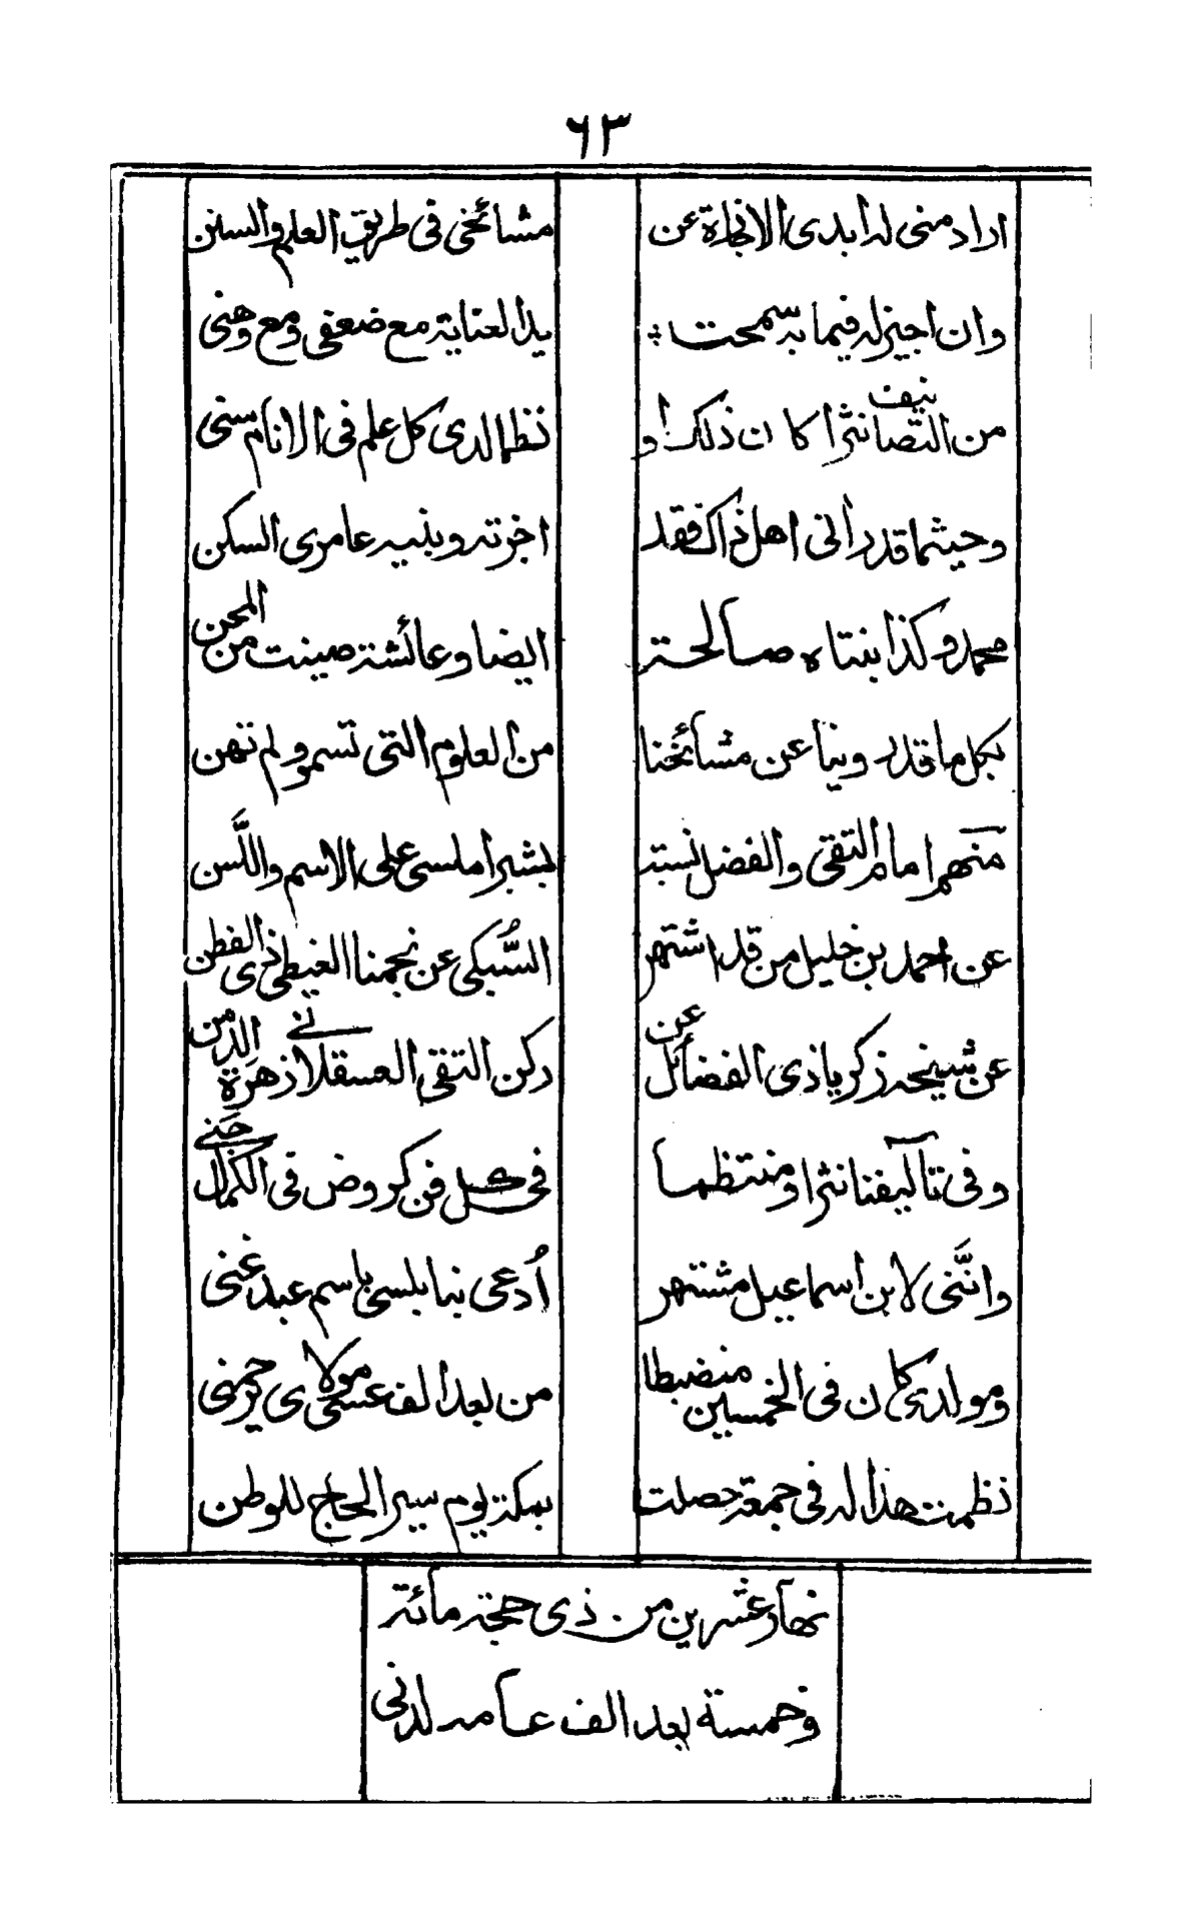 ٦٣
اراد منى له ابدى الاجازة عن مشائخى فى طريق العلم والسنن
وان اجيز له فيما به سمحت يد العناية مع ضعفى ومع وهنى
من التصانيف نثرا كان ذلك او نظما لدى كل علم فى الانام سنى
وحيثما قد رانى اهل ذاك فقد اجزته وبنيه عامرى السكن
محمد وكذا بنتاه صالحة ايضا وعائشة صينت من المحن
بكل ما قد روينا عن مشائخنا من العلوم التى تسمو ولم تهن
منهم امام التقى والفضل نسبته بشبراملسى على الاسم واللَّسن
عن احمد بن خليل من قد اشتهر السُّبكى عن نجمنا الغيطى ذى الفطن
عن شيخه زكريا ذى الفضائل عن ركن التقى العسقلانى زهرة الزمن
وفى تآليفنا نثرا ومنتظما فى كل فن كروض فى الكمال جنى
وانَّنى لابن اسماعيل مشتهر اُدعى بنابلسى باسم عبد غنى
ومولدى كان فى الخمسين منضبطا من بعد الف عسى مولاى يرحمنى
نظمت هذا له فى جمعة حصلت بمكة يوم سير الحاج للوطن
نهار عشرين من ذى حجة مائة
وخمسة بعد الف عامه لدنى